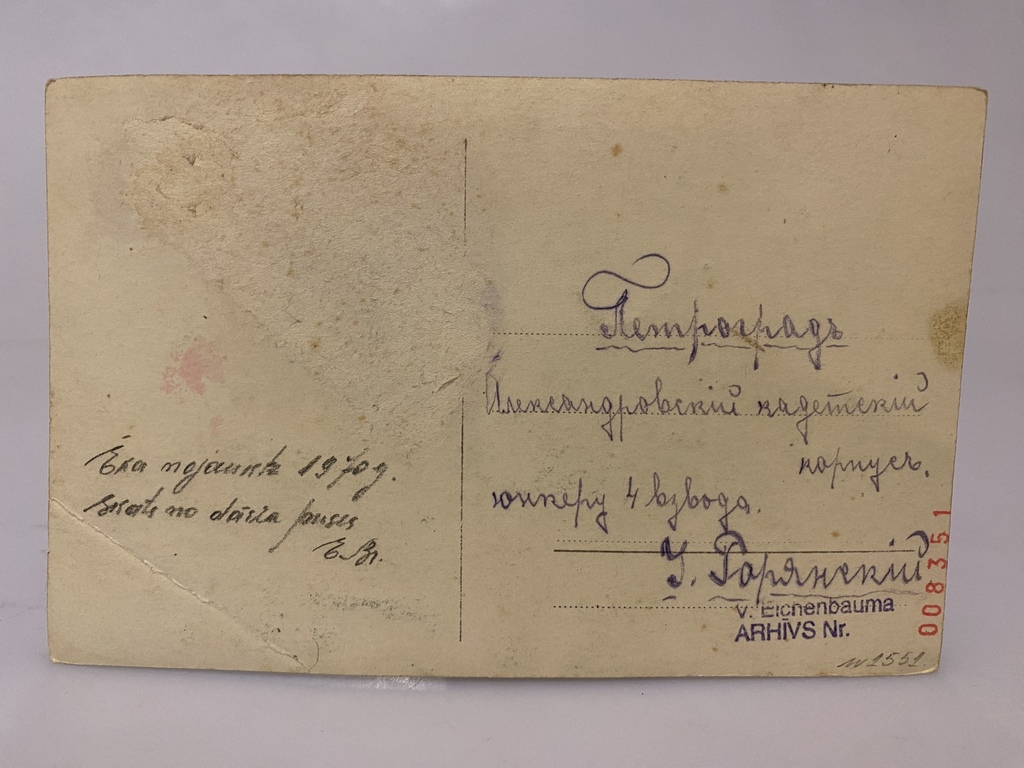 Ēka nojaukta 1970g.
Skats no dārza puses
E.Br.
Петроградъ
Александровскій кадетскій
корпусъ.
юнкеру 4 взвода.
У. Горянскій
V. Eichenbauma
ARHĪVS Nr.
008351
1551